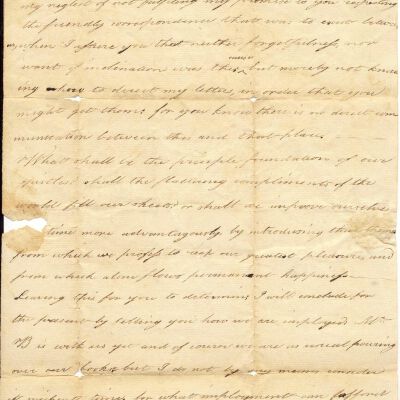 my neglect of not fulfilling my promise to you respecting
the friendly correspondence that was to exist between
us, when I assure you that neither forgetfulness nor
want of inclination was the cause but merely not know
ing how to direct my letters, in order that you
might get them: for you know there is no direct com
munication between this and that place.
What shall be the principle foundation of our
epistles? shall the flattering compliments of the
world fill our sheets; or shall we improve our
time more advantageously by introducing
from which we profess to reap our greatest pleasures and
from which alone flows permanent happiness—
Leaving this for you to determine, I will conclude for
the present by telling you how we are employed. Mr
B is with us yet and of course we are as usual, pouring
over our books, but I do not by any means consider
for what employment can afford